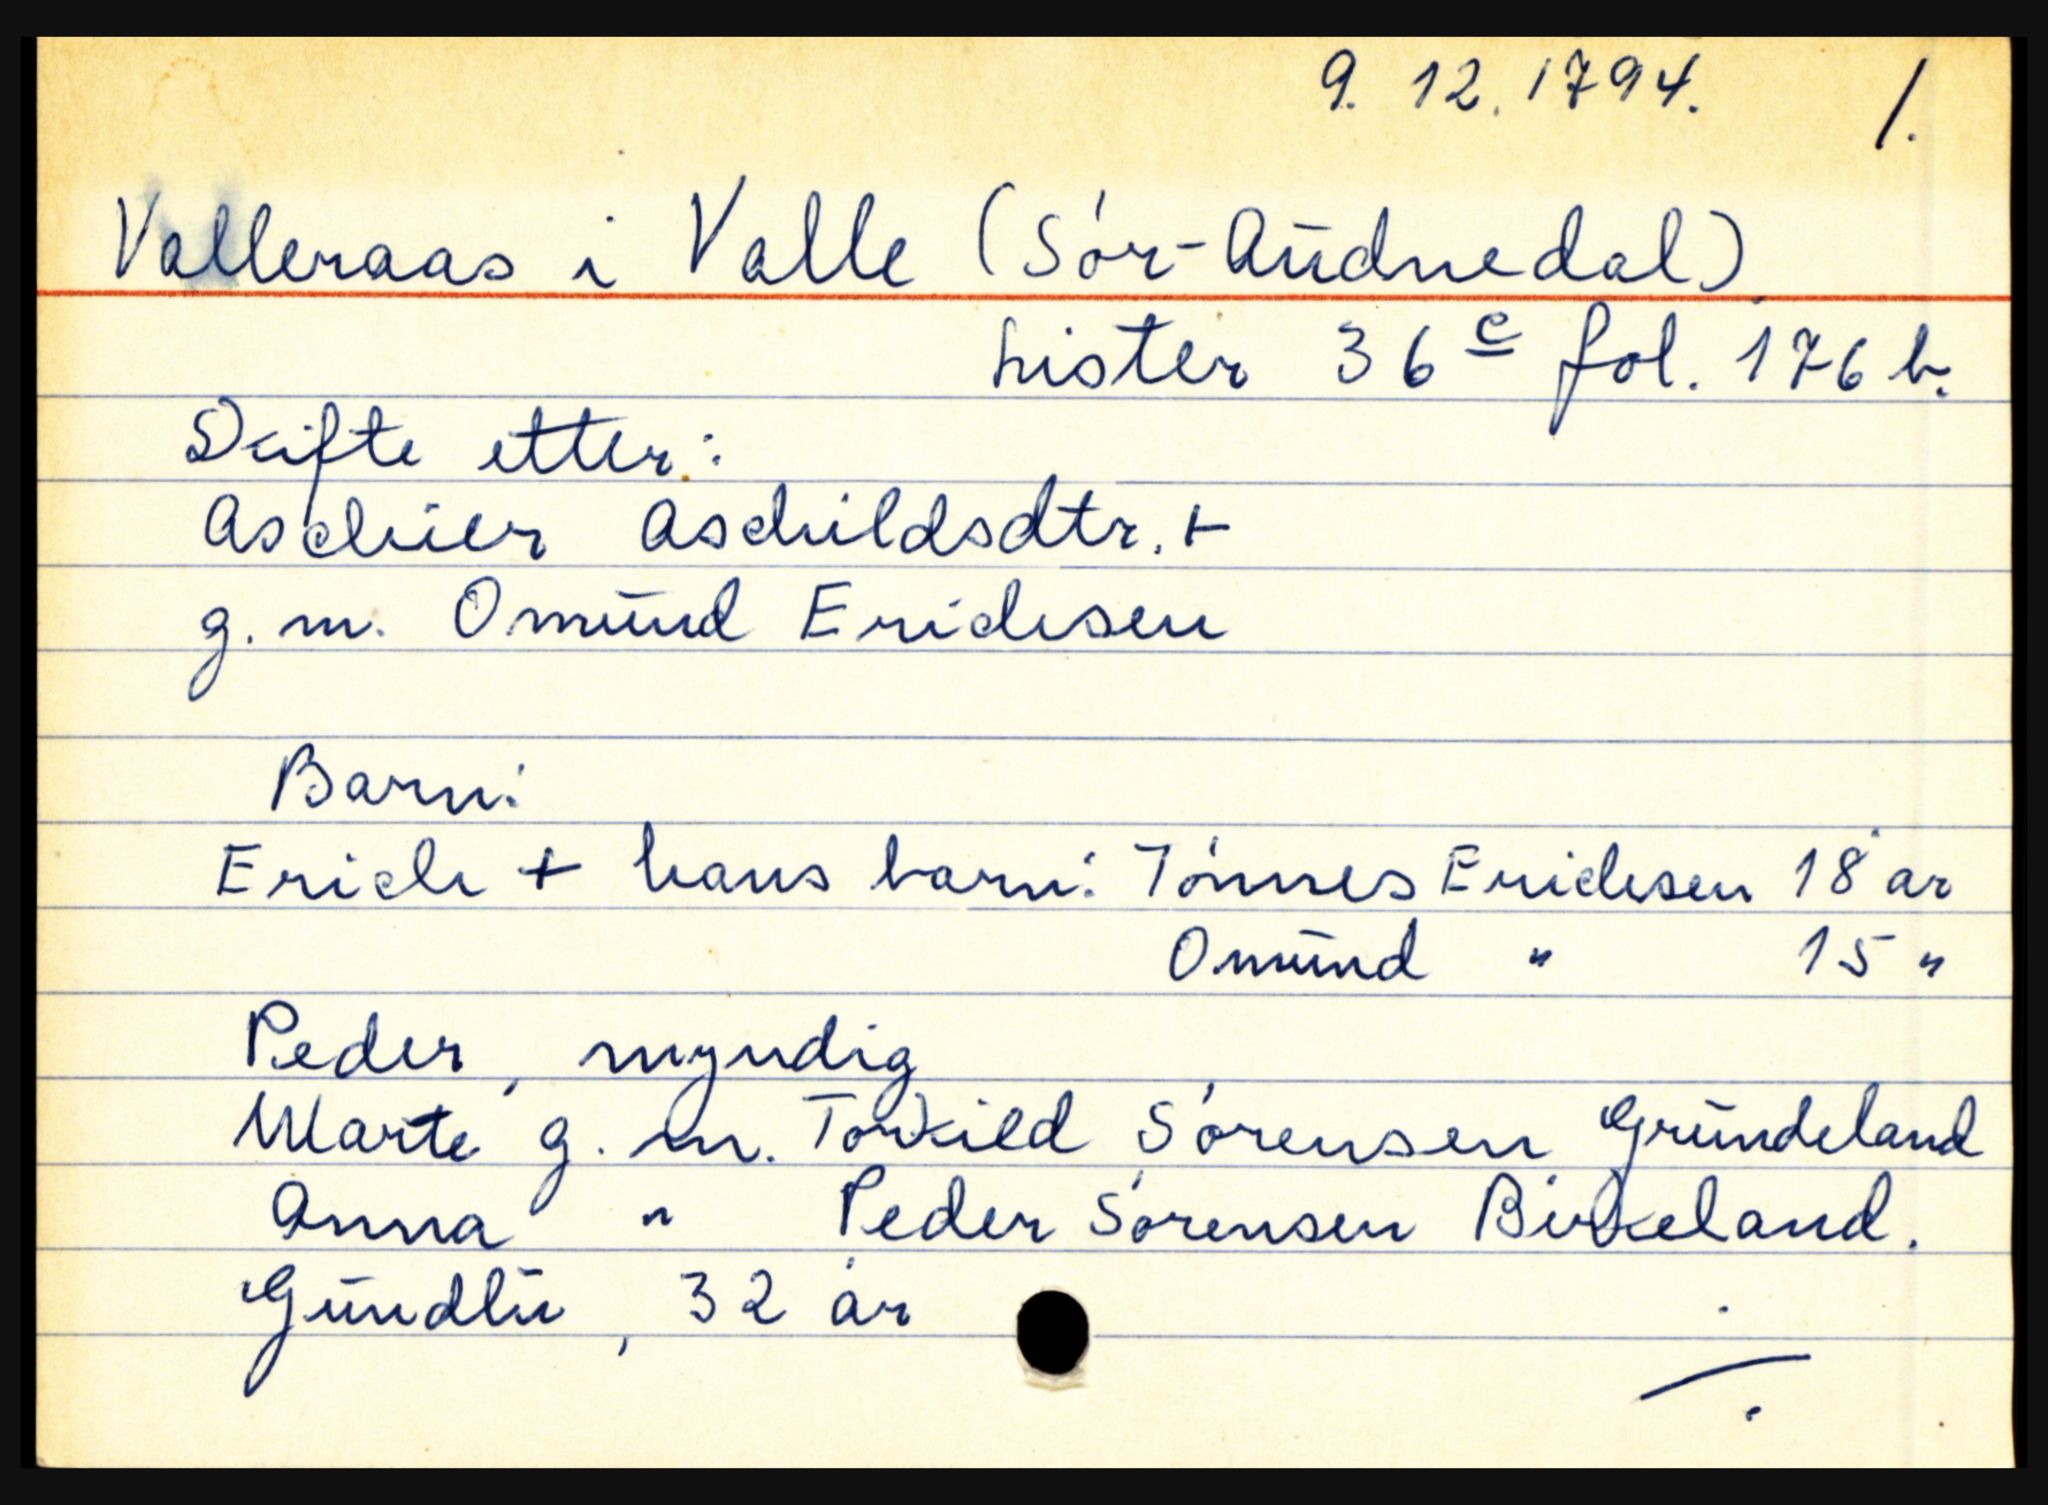 9. 12. 1794. 1.
Valleraas i Valle (Sór-Audnedal)
Lister 36 c fol. 176 b.
Skifte etter:
Aschier Aschildsdtr. +
g. m. Omund Erichsen
Barn:
Erich + hans barn: Tónnes Erichsen 18 år
Omund " 15 "
Peder, myndig
Marte g. m. Torkild Sórensen Grundeland
Anna " Peder Sórensen Birkeland.
Gundlu, 32 år